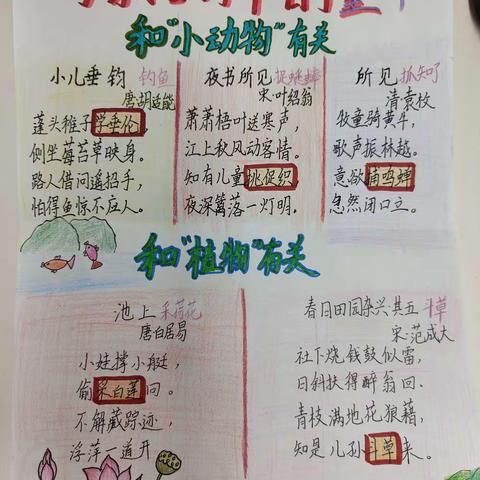 和“小动物”有关
小儿垂钓 钓鱼
唐胡适能
蓬头稚子学垂纶，
侧坐莓苔草映身。
路人借问遥招手，
怕得鱼惊不应人。
夜书所见 捉蟋蟀
宋·叶绍翁
萧萧梧叶送寒声，
江上秋风动客情。
知有儿童挑促织，
夜深篱落一灯明。
所见 抓知了
清袁枚
牧童骑黄牛，
歌声振林樾。
意欲捕鸣蝉，
忽然闭口立。
和“植物”有关
池上 采荷花
唐白居易
小娃撑小艇，
偷采白莲回。
不解藏踪迹，
浮萍一道开
春日田园杂兴其五 斗草
宋·范成大
社下烧钱鼓似雷，
日斜扶得醉翁回。
青枝满地花狼藉，
知是儿孙斗草来。